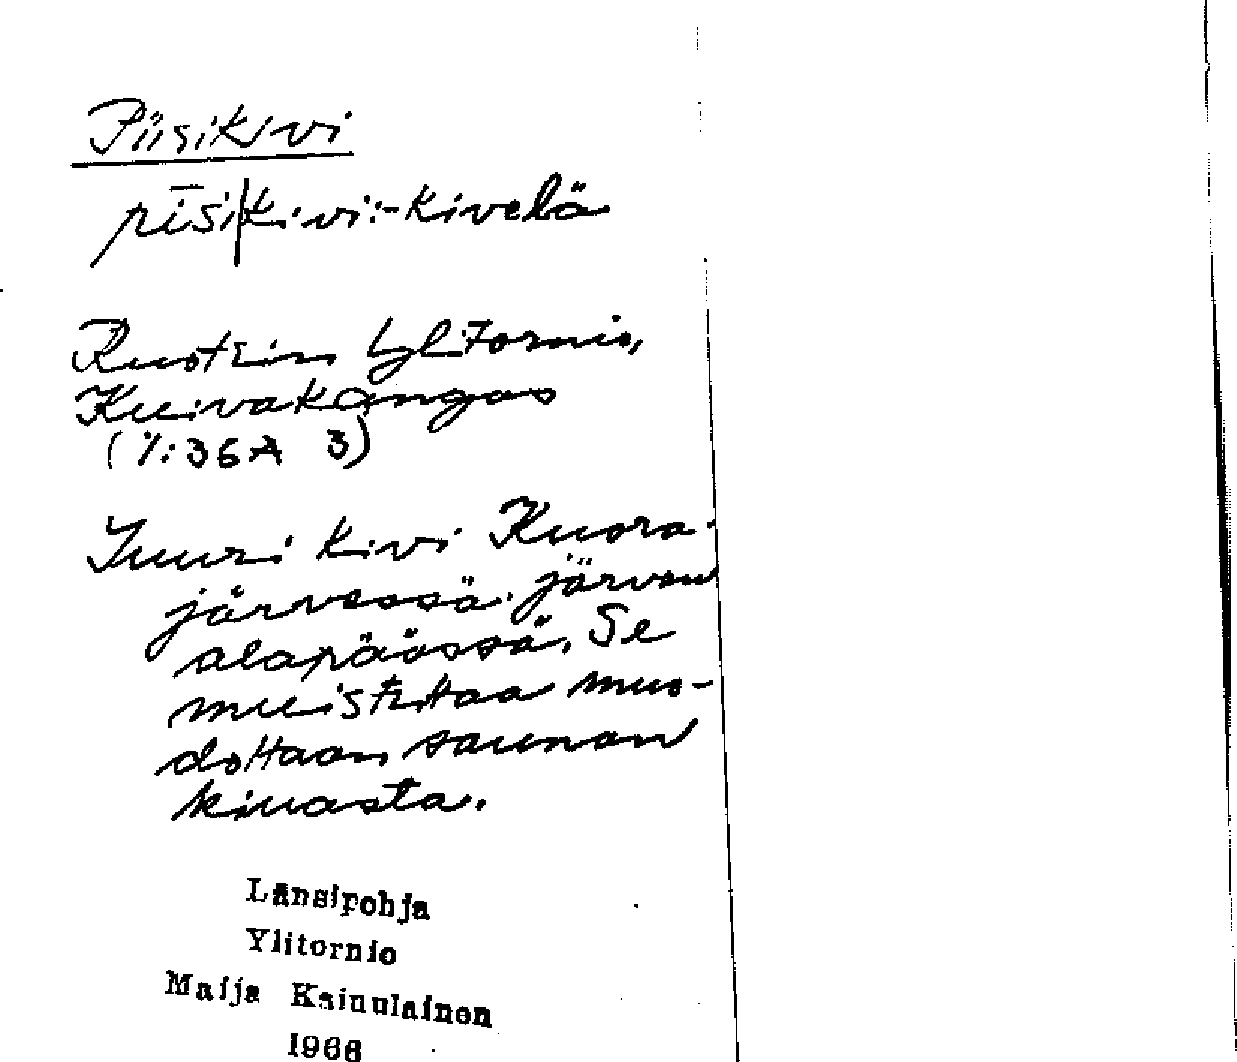 Piisikivi
pīsi|kivi: -kivelä
Ruotsin Ylitornio,
Kuivakangas
(1/:36A 3)
Suuri kivi Kuora-
järvessä. järven
alapäässä. Se
muistuttaa muo-
doltaan saunan
kiuasta.
Länsipohja
Ylitornio
Maija Kainulainen
1966